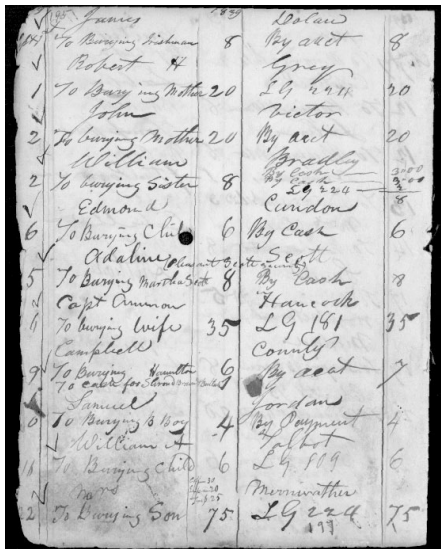 James 1839 Dolan
To Burying Irishman 8 By acct 8
Robert H Grey
1 To Burying Mother 20 LG 224 20
John Victor
2 To burying Mother 20 By acct 20
William Bradley
By Cash 3.00
2 To burying Sister 8 By Cash
LG 224
8
Edmond
6 To Burying Child 6 By Cash 6
Adaline Scott
5 To Burying Martha Scott 8 By Cash 8
Capt Ammon Hancock
To burying Wife 35 LG 181 35
Campbell County
9 To Burying Hamilton 6 By acct 7
To cash for
Samuel Jordan
To Burying B Boy 4 By Payment 4
William A Talbot
To Burying Child 6 LG 109 6
Mrs Merriwether
2 To Burying Son 75 LG 224 75